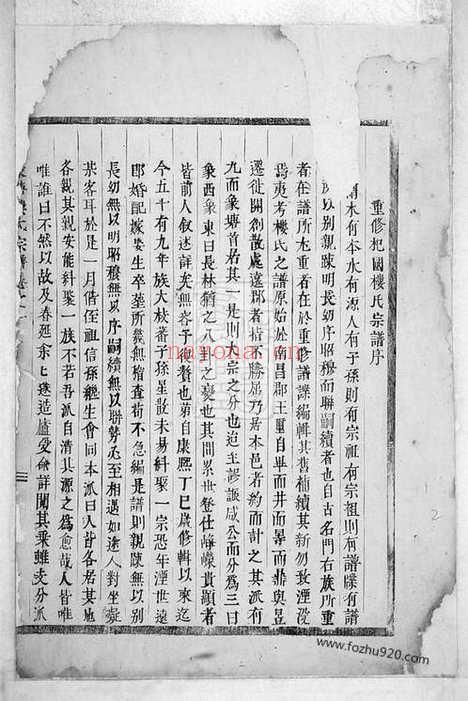 重修杞國樓氏宗譜序
水有本水有源人有子孫則有宗祖有宗祖則有譜牒有譜
以别親踈明長幼序昭穆而聯嗣續者也自古名門右族所重
者在譜所尤重者在於重修譜諜編輯其舊補續其新勿致湮没
焉夷考樓氏之譜原始於南昌郡王重自畢而井而鼎與昱
遷徙開創散處遠郡者指不勝屈乃居本邑者約而計之其派有
九而象塘首居其一是則大宗之分也迨主謬謙咸公而分為三曰
象西象東曰長林猶之八卦之變也其間累世登仕崢嶸貴顯者
皆前人叙述詳矣無容予復贅也第自康熙丁巳歲修輯以來迄
今五十有九年族大枝蕃子孫星散未易糾聚一宗恐年湮世遠
郎婚記嫁息生卒塟所幾無稽查若不急編是譜則親踈無以别
長幼無以明昭穆無以序嗣續無以聨勢必至相遇如途人對坐
茶客耳於是一月偕侄祖信孫繼生會同本派曰人皆各居其地
各親其親安能糾聚一族不若吾派自清其源之為愈哉人皆唯
唯誰曰不然故及春延余七遂造廬受命詳閲其乘雖支分派
宗譜卷之一
2
nayona.cn
www.fozhu920.com